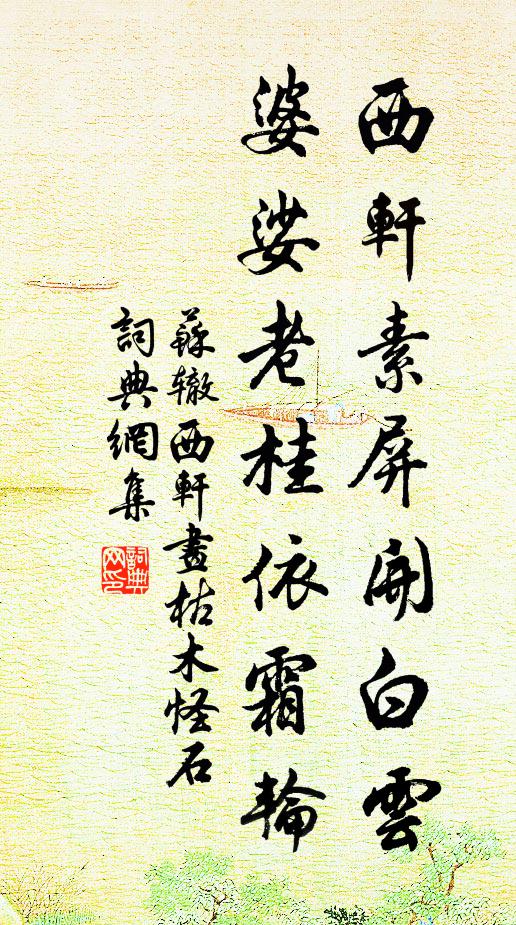 西軒素屏開白雲
婆娑老桂依霜輪
蘇辙西軒畫枯木怪石
詞典網集
詞典网印